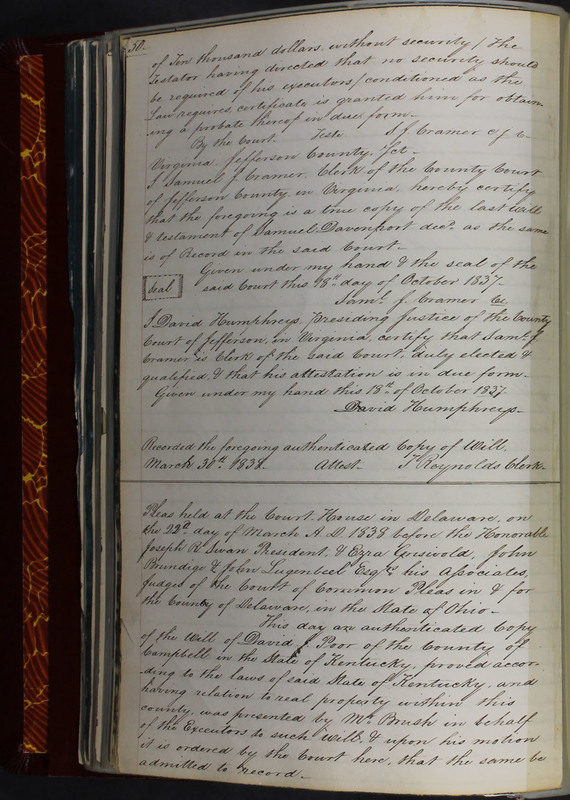 50.
of Ten thousand dollars, without security / The
Testator having directed that no security should
be required of his executors / conditioned as the
Law requires, certificate is granted him for obtain-
ing a probate thereof in due form -
By the Court. Teste S. J. Cramer C. J. C.
Virginia. Jefferson County, Sct -
I Samuel J. Cramer, Clerk of the County Court
of Jefferson County in Virginia, hereby certify
that the foregoing is a true copy of the last Will
& testament of Samuel Davenport decd. as the same
is of Record in the said Court -
Given under my hand & the seal of the
seal said Court this 18th day of October 1837.
Saml. J. Cramer Cl.
I David Humphreys, Presiding Justice of the County
Court of Jefferson, in Virginia, certify that Saml. J.
Cramer is Clerk of the said Court, duly elected &
qualified, & that his attestation is in due form -
Given under my hand this 18th of October 1837.
David Humphreys -
Recorded the foregoing authenticated Copy of Will.
March 30th 1838. Attest. T Reynolds Clerk -
Pleas held at the Court House in Delaware, on
the 22d. day of March A. D. 1838 before the Honorable
Joseph R. Swan President, & Ezra Griswold, John
Brundige & John Lugenbeel Esqrs. his Associates,
Judges of the Court of Common Pleas in & for
the County of Delaware, in the State of Ohio -
This day an authenticated Copy
of the Will of David J. Poor of the County of
Campbell in the State of Kentucky, proved accor-
ding to the laws of said State of Kentucky, and
having relation to real property within this
county, was presented by Mr. Brush in behalf
of the Executors to such Will, & upon his motion
it is ordered by the Court here, that the same be
admitted to record -